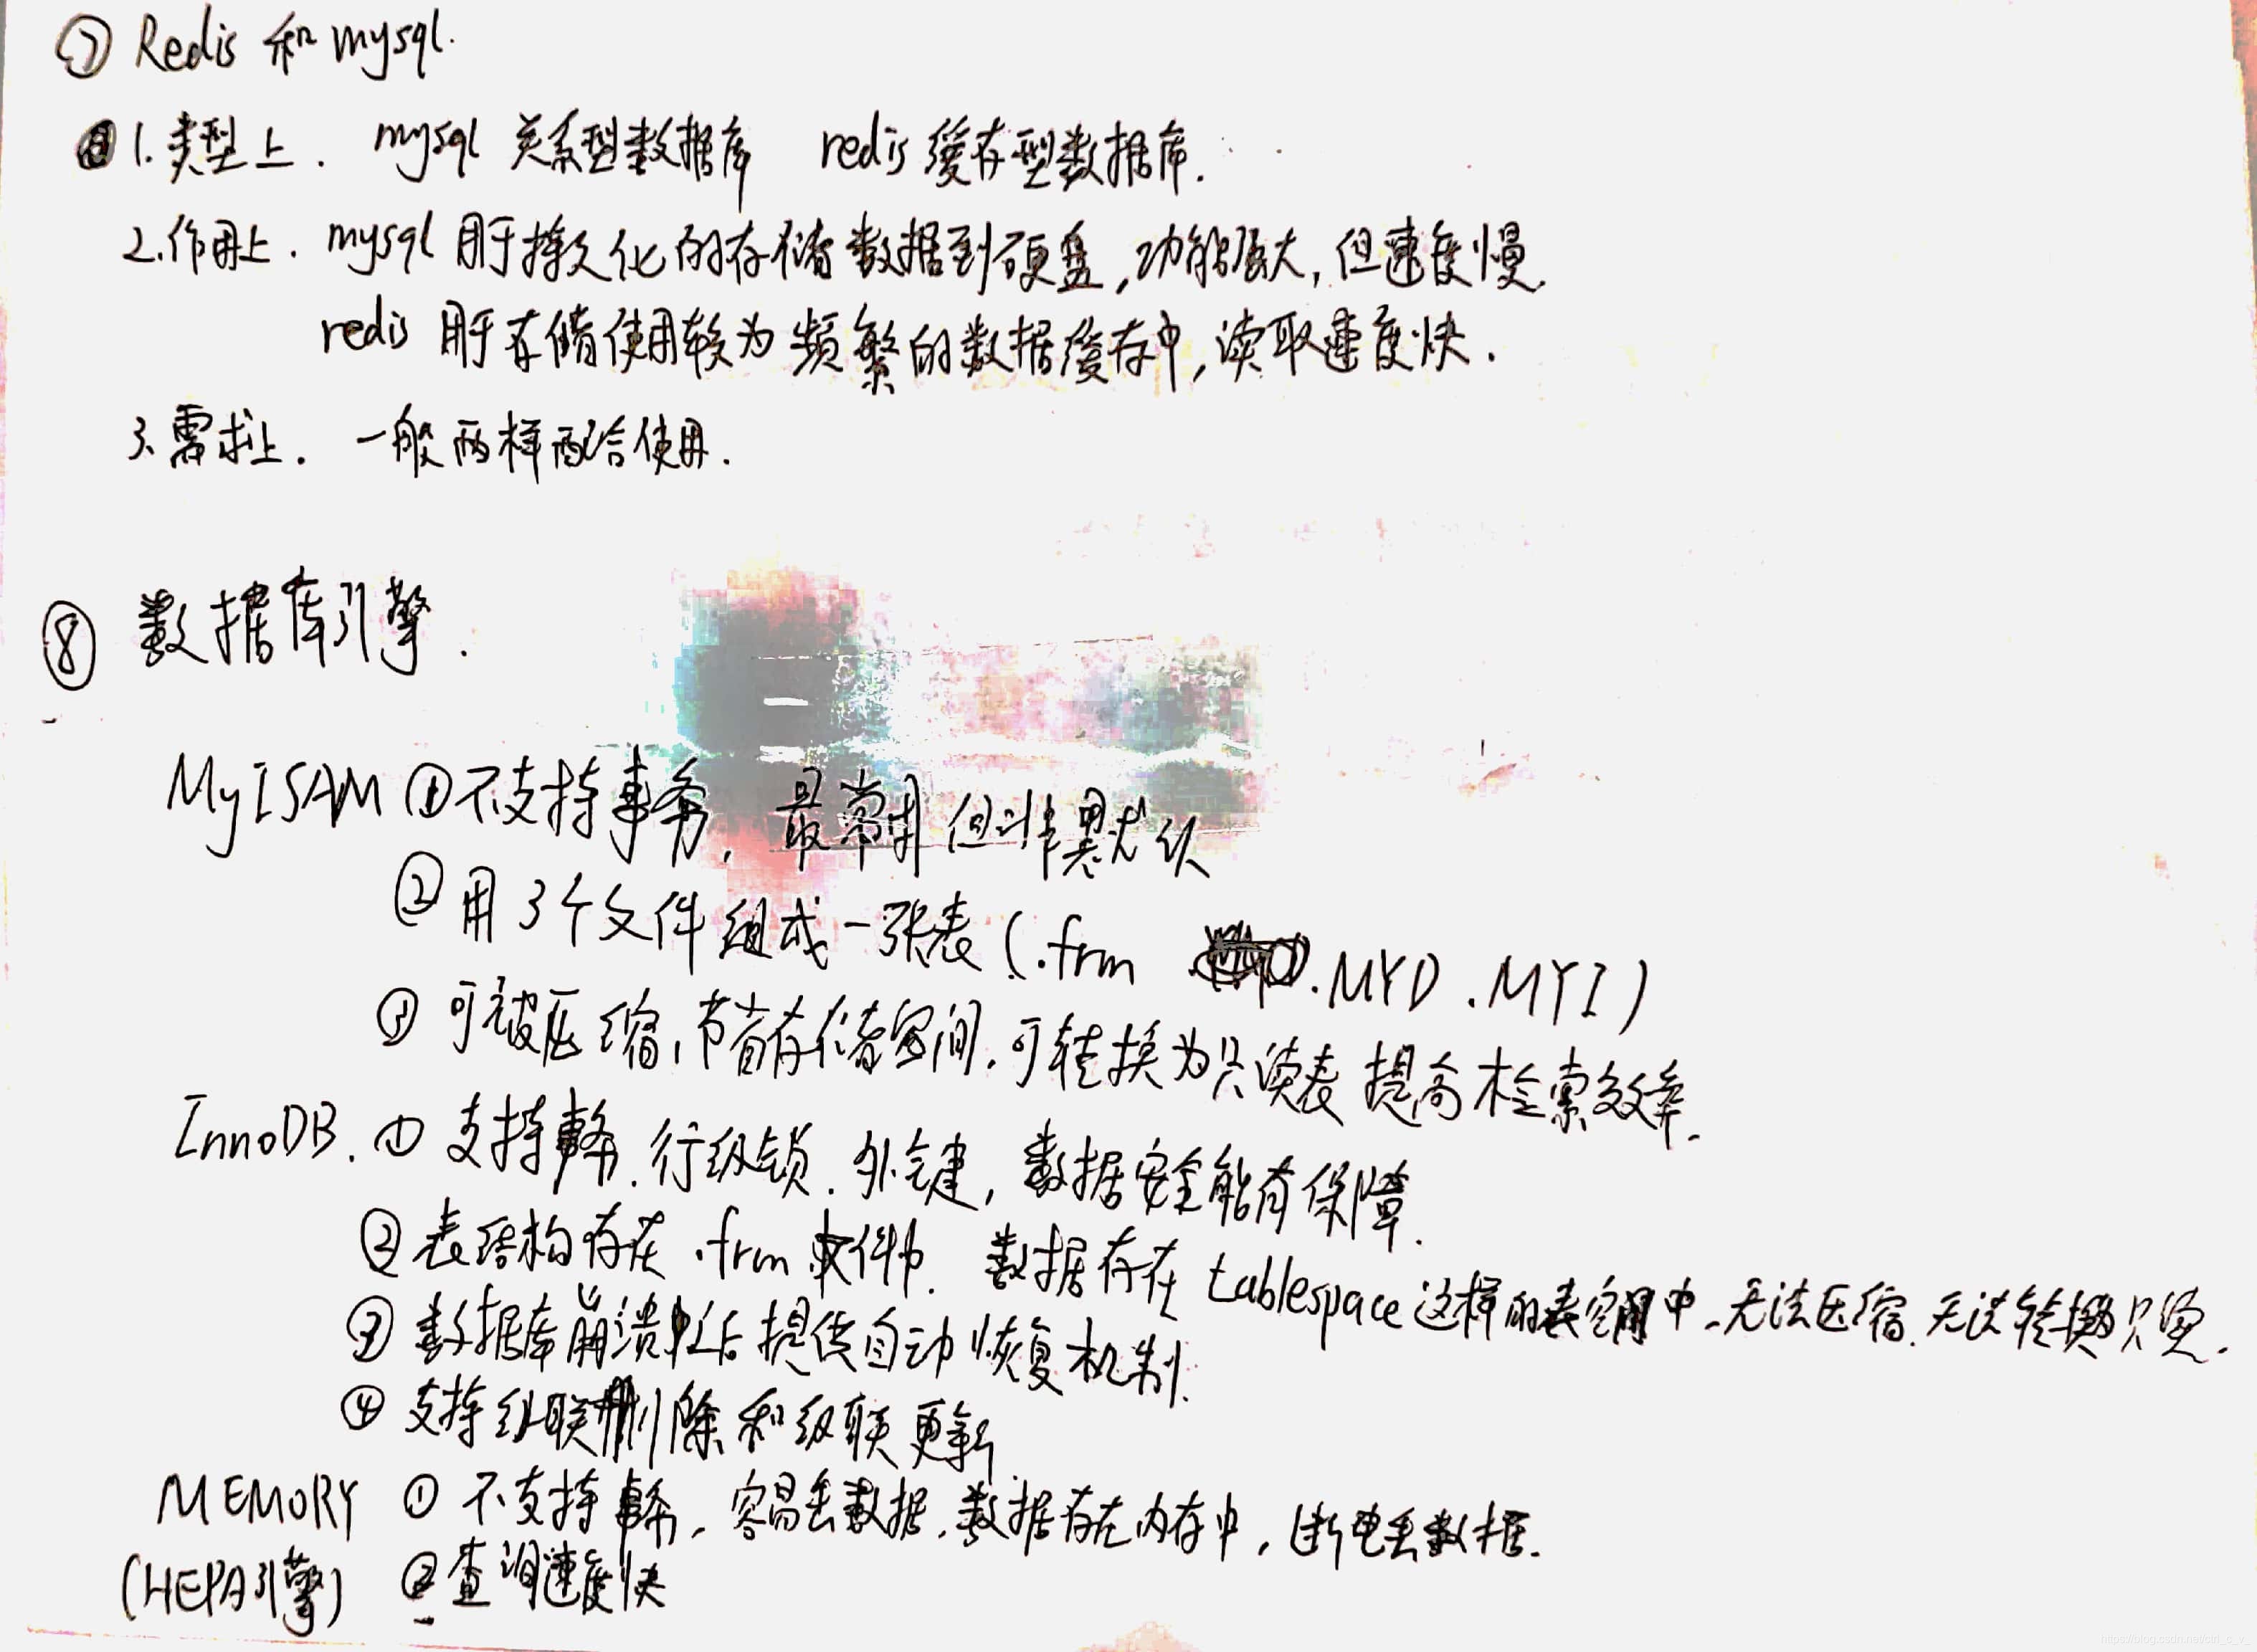 ⑦ Redis 和 mysql.
1. 类型上. mysql 关系型数据库 redis 缓存型数据库.
2. 作用上. mysql 用于持久化的存储数据到硬盘,功能强大,但速度慢.
redis 用于存储使用较为频繁的数据缓存中,读取速度快.
3. 需求上. 一般两样配合使用.
⑧ 数据库引擎.
MyISAM ① 不支持事务, 最常用但非默认
② 用3个文件组成一张表 (.frm .MYD .MYI)
③ 可被压缩,节省存储空间.可转换为只读表 提高检索效率.
InnoDB. ① 支持事务.行级锁.外键,数据安全能有保障.
② 表结构存在 .frm 文件中. 数据存在 tablespace 这样的表空间中.无法压缩.无法转换为只读.
③ 数据库崩溃后提供自动恢复机制.
④ 支持级联删除和级联更新.
MEMORY ① 不支持事务,容易丢数据.数据存在内存中,断电丢数据.
(HEPA引擎) ② 查询速度快